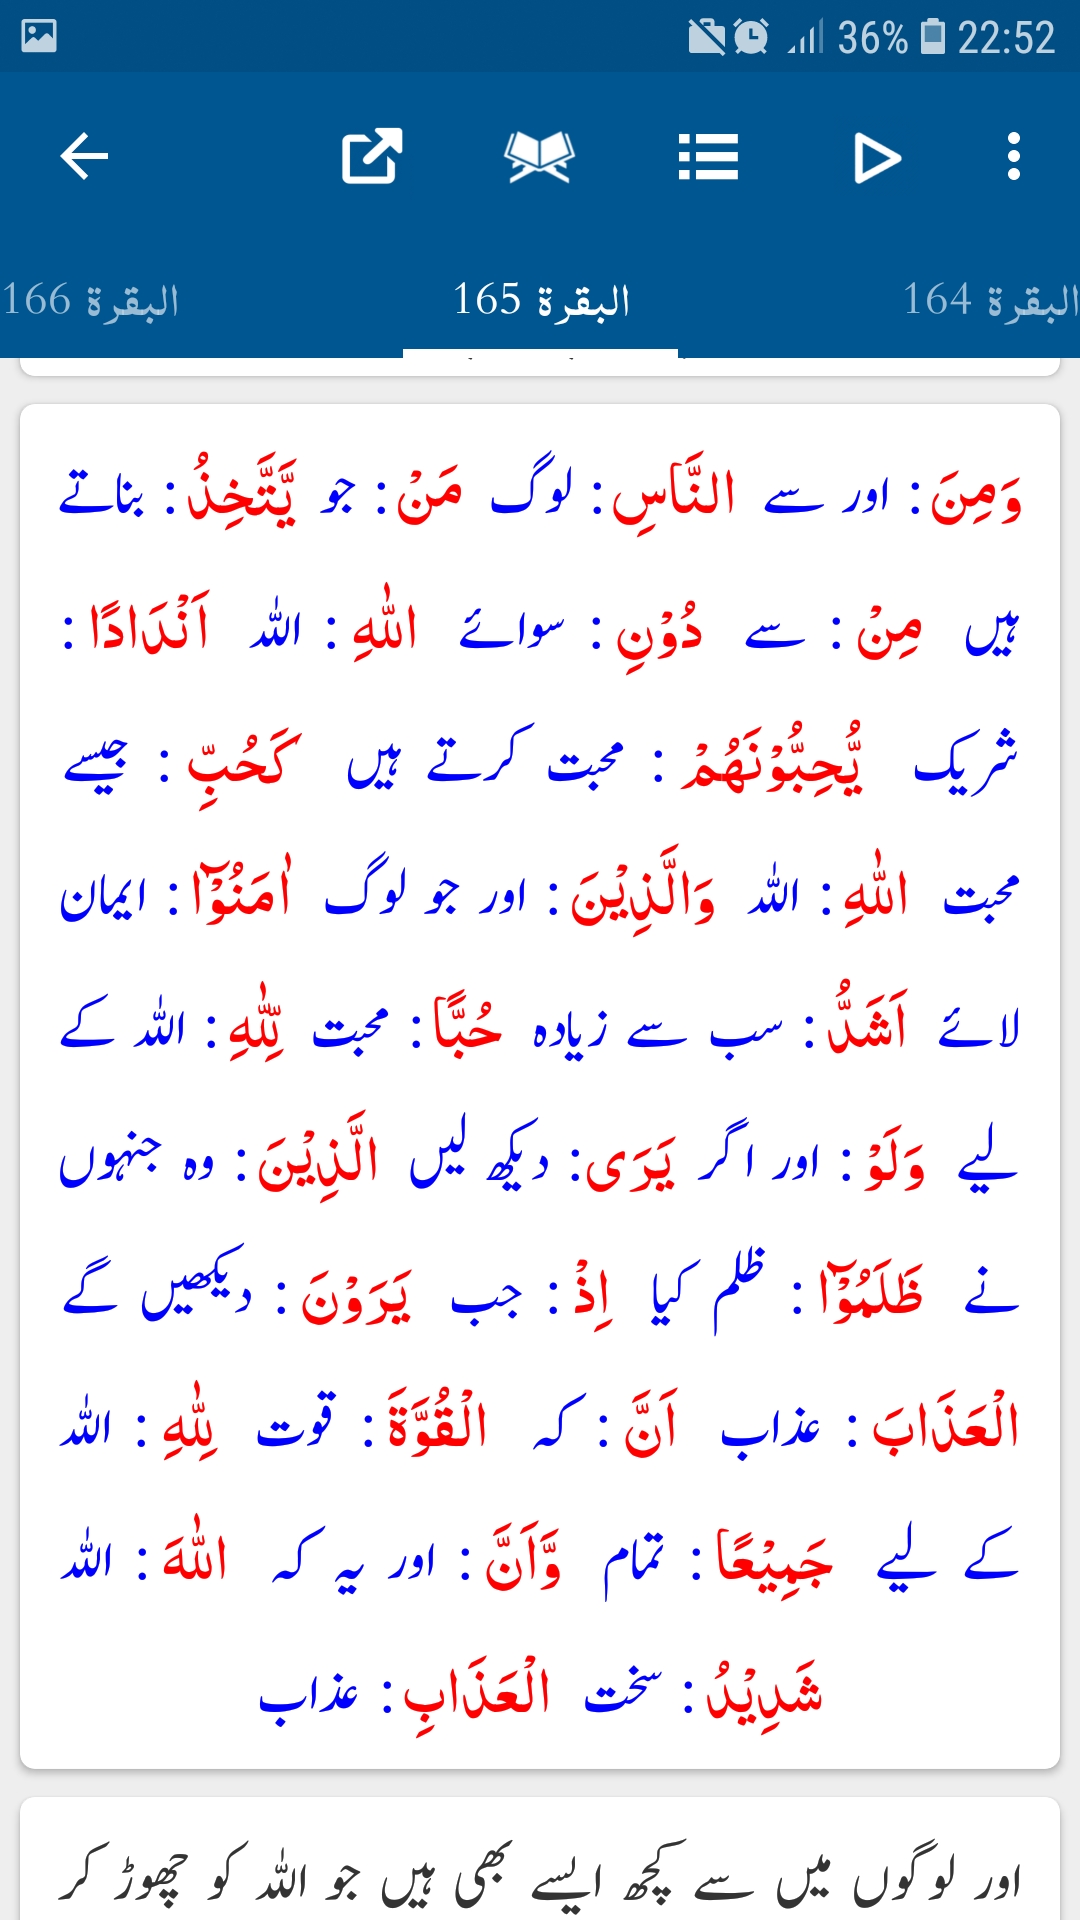 36% 22:52
البقرة 164 البقرة 165 البقرة 166
وَمِنَ : اور سے النَّاسِ : لوگ مَنْ : جو يَّتَّخِذُ : بناتے
ہیں مِنْ : سے دُوْنِ : سوائے اللّٰهِ : اللہ اَنْدَادًا :
شریک يُّحِبُّوْنَهُمْ : محبت کرتے ہیں كَحُبِّ : جیسے
محبت اللّٰهِ : اللہ وَالَّذِيْنَ : اور جو لوگ اٰمَنُوْٓا : ایمان
لائے اَشَدُّ : سب سے زیادہ حُبًّا : محبت لِّلّٰهِ : اللہ کے
لیے وَلَوْ : اور اگر يَرَى : دیکھ لیں الَّذِيْنَ : وہ جنہوں
نے ظَلَمُوْٓا : ظلم کیا اِذْ : جب يَرَوْنَ : دیکھیں گے
الْعَذَابَ : عذاب اَنَّ : کہ الْقُوَّةَ : قوت لِلّٰهِ : اللہ
کے لیے جَمِيْعًا : تمام وَّاَنَّ : اور یہ کہ اللّٰهَ : اللہ
شَدِيْدُ : سخت الْعَذَابِ : عذاب
اور لوگوں میں سے کچھ ایسے بھی ہیں جو اللہ کو چھوڑ کر